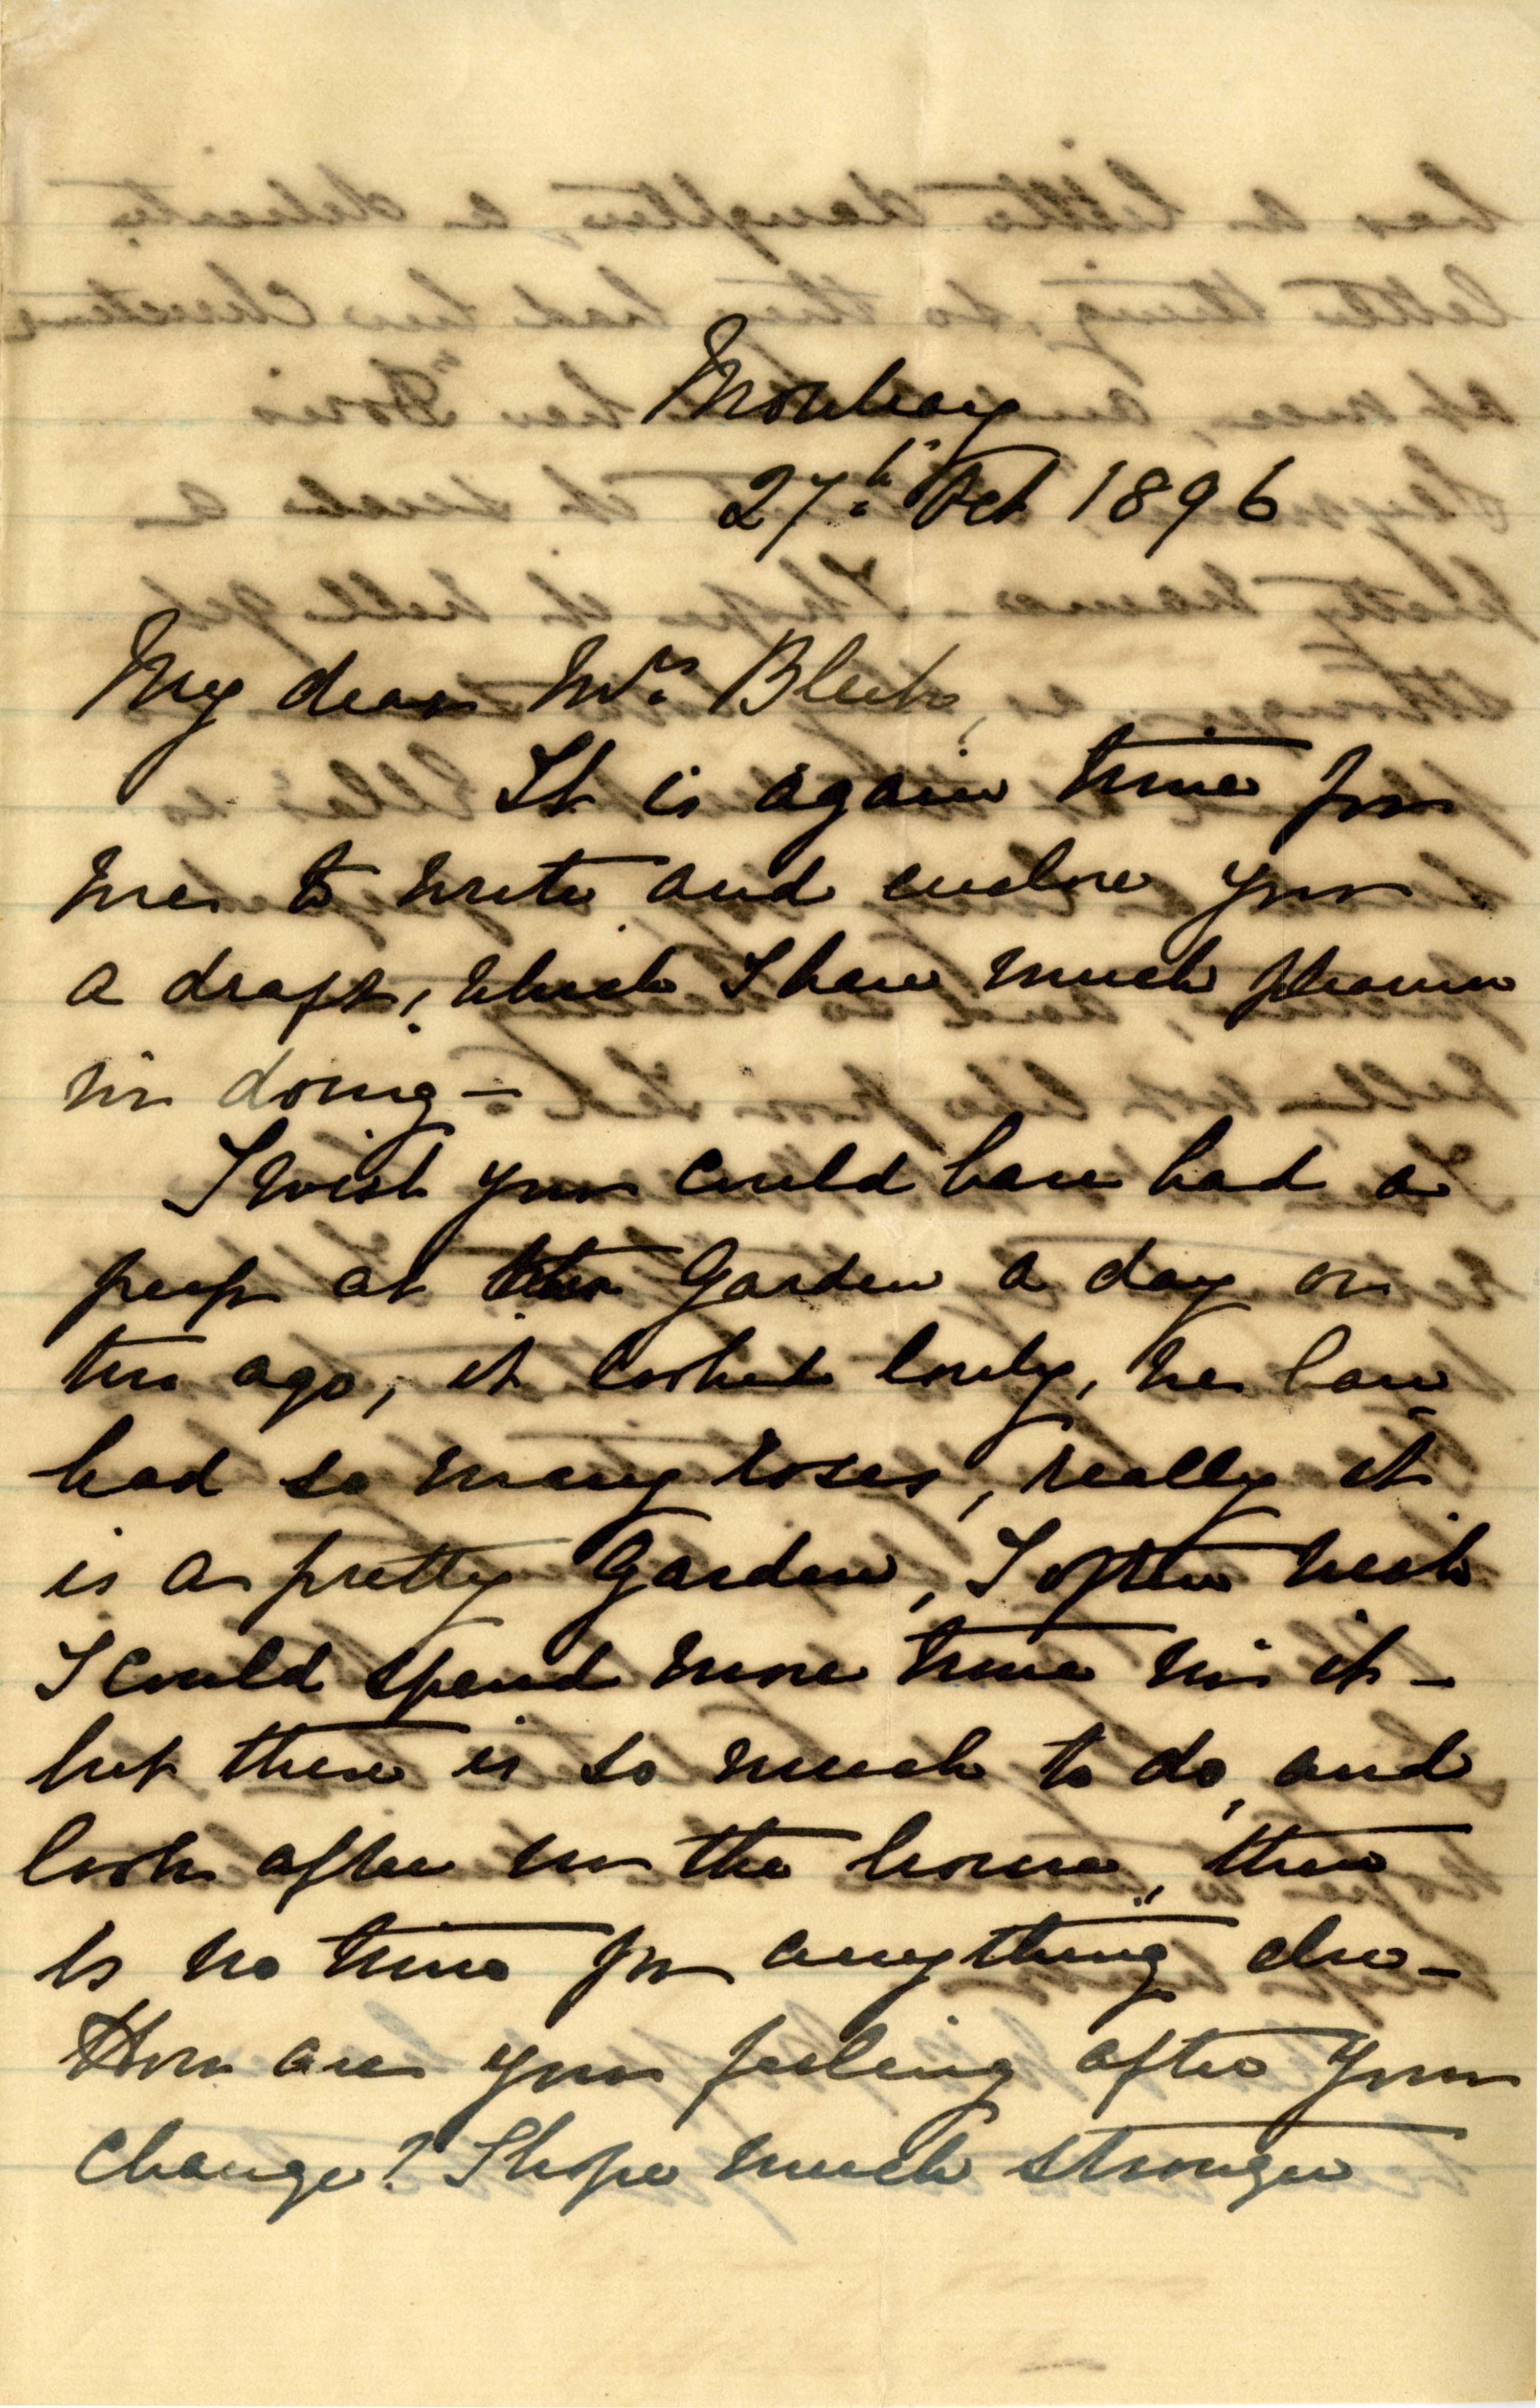 Mowbray
27th Oct 1896
My dear Mrs Bleek,
It is again time for
me to write and enclose you
a draft, which I have much pleasure
in doing –
I wish you could have had a
peep at the Garden a day or
two ago, it looked lovely, we have
had so many roses, really it
is a pretty Garden, I often wish
I could spend more time in it –
but there is so much to do, and
look after in the house, there
is no time for anything else –
How are you feeling after your
change? I hope much stronger